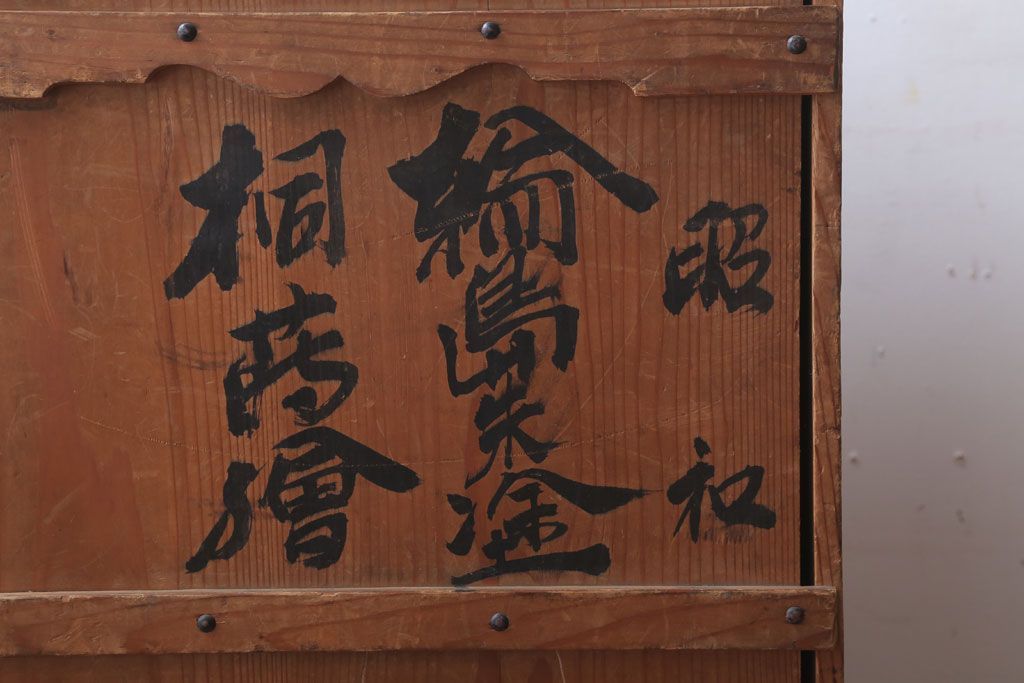 昭和
輪島朱塗
桐蒔繪